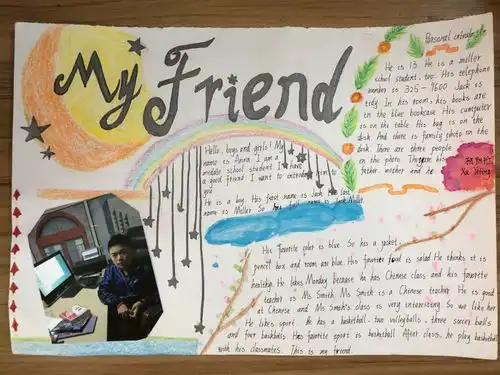 My Friend
Hello, boys and girls! My
name is Anna. I am a
middle school student. I have
a good friend. I want to introduce him to
you.
He is a boy. His first name is Jack. His last
name is Miller. So his full name is Jack Miller.
Personal introduction
He is 13. He is a miller
school student, too. His telephone
number is 305-9600. Jack is
tidy. In his room, his books are
in the blue bookcase. His computer
is on the table. His bag is on the
desk. And there is family photo on the
desk. There are three people
in the photo. They're his
father, mother and he.
Xu Yiting
His favorite color is blue. So his a jacket,
pencil box and room are blue. His favorite food is salad. He thinks it is
healthy. He likes Monday, because he has Chinese class and his favorite
teacher is Ms Smith. Ms Smith is a Chinese teacher. He is good
at Chinese and Ms Smith's class is very interesting. So we like her.
He likes sport. He has a basketball, two volleyballs, three soccer balls
and four baseballs. His favorite sport is basketball. After class, he play basketball
with his classmates. This is my friend.